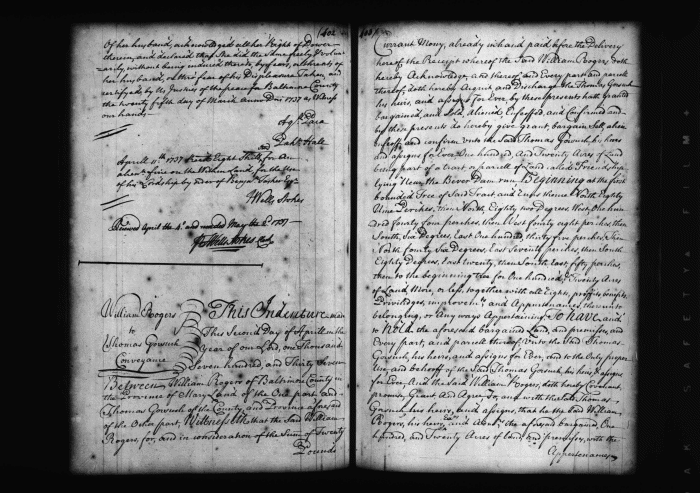 402
Of her husband, acknowledged all her Right of Dower
therein, and declared that She did the Same freely & Volun-
tarily, without being induced thereto, by fears, or threats of
her husband, or thro' fear of his Displeasure Taken and
certified, by Us Justices of the peace for Baltimore County
the twenty fifth day of March Anno Dni 1737 as Witness
our hands
Zach Hall
Aprill 11th 1737 Recd Eight Shills for An
alienation fine on the Within Land for the Use
of his Lordship by Order of
J Wells Stokes
Received April the 4th and recorded May the 2d 1737
J Wells Stokes Clk
William Rogers
to
Thomas Gorsuch
Conveyance
This Indenture made
This Second Day of April in the
year of our Lord, one Thousand
Seven hundred and Thirty Seven
Between William Rogers of Baltimore County in
the Province of Mary Land of the One part, and
Thomas Gorsuch of the County, and Province aforesaid
of the Other part, Witnesseth that the Said William
Rogers, for, and in consideration of the Sum of Twenty
Pounds
Currant Mony, already in hand paid before the Delivery
hereof the Receipt whereof the Said William Rogers, doth
hereby Acknowledge, and thereof and Every part and parcell
thereof, doth hereby Acquit and Discharge the Thomas Gorsuch
his heirs, and assigns for Ever, by these presents hath granted
bargained, and Sold, aliened, Enfeoffed, and Confirmed and
by these presents do hereby give grant, bargain Sell, alien
Enfeoff and confirm unto the Said Thomas Gorsuch, his heirs
and assigns for Ever One hundred, and Twenty Acres of Land
being part of a tract or parcell of Land called Friendship
lying Near the River Beginning at the first
bounded Tree of Said Tract and runs thence North, Eighty
Nine Perches, then North, Eighty two Degrees, West One hun-
dred forty four perches, then West forty eight perches, then
South, Six Degrees, East One hundred, thirty five perches, then
North forty Six Degrees, East Seventy perches, then South
Eighty Degrees, East twenty, then South, East fifty perches,
then to the beginning tree for One hundred, & Twenty Acres
of Land More, or less, together with all Rights, profits benefits
Priviledges, improvemts and Appurtenances, thereunto
belonging, or Any ways Appertaining To have and
to Hold the aforesaid bargained Land, and premises, and
Every part, and parcell thereof, Unto the Said Thomas
Gorsuch, his heirs, and assigns for Ever, and to the Only proper
Use, and behoof of the Said Thomas Gorsuch, his heirs, & assigns
for Ever, And the Said William Rogers, doth hereby Covenant,
promise, Grant and Agree to, and with the Said Thomas
Gorsuch, his heirs, and assigns, that he the Said William
Rogers, his heirs, and the aforesaid bargained, One
hundred, and Twenty Acres of Land, and premises, with the
Appertenances